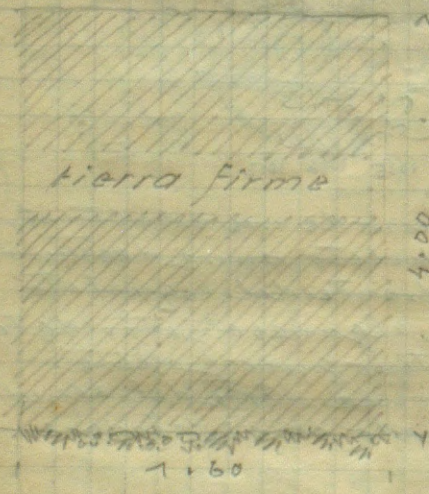 tierra firme
4.00
1.60